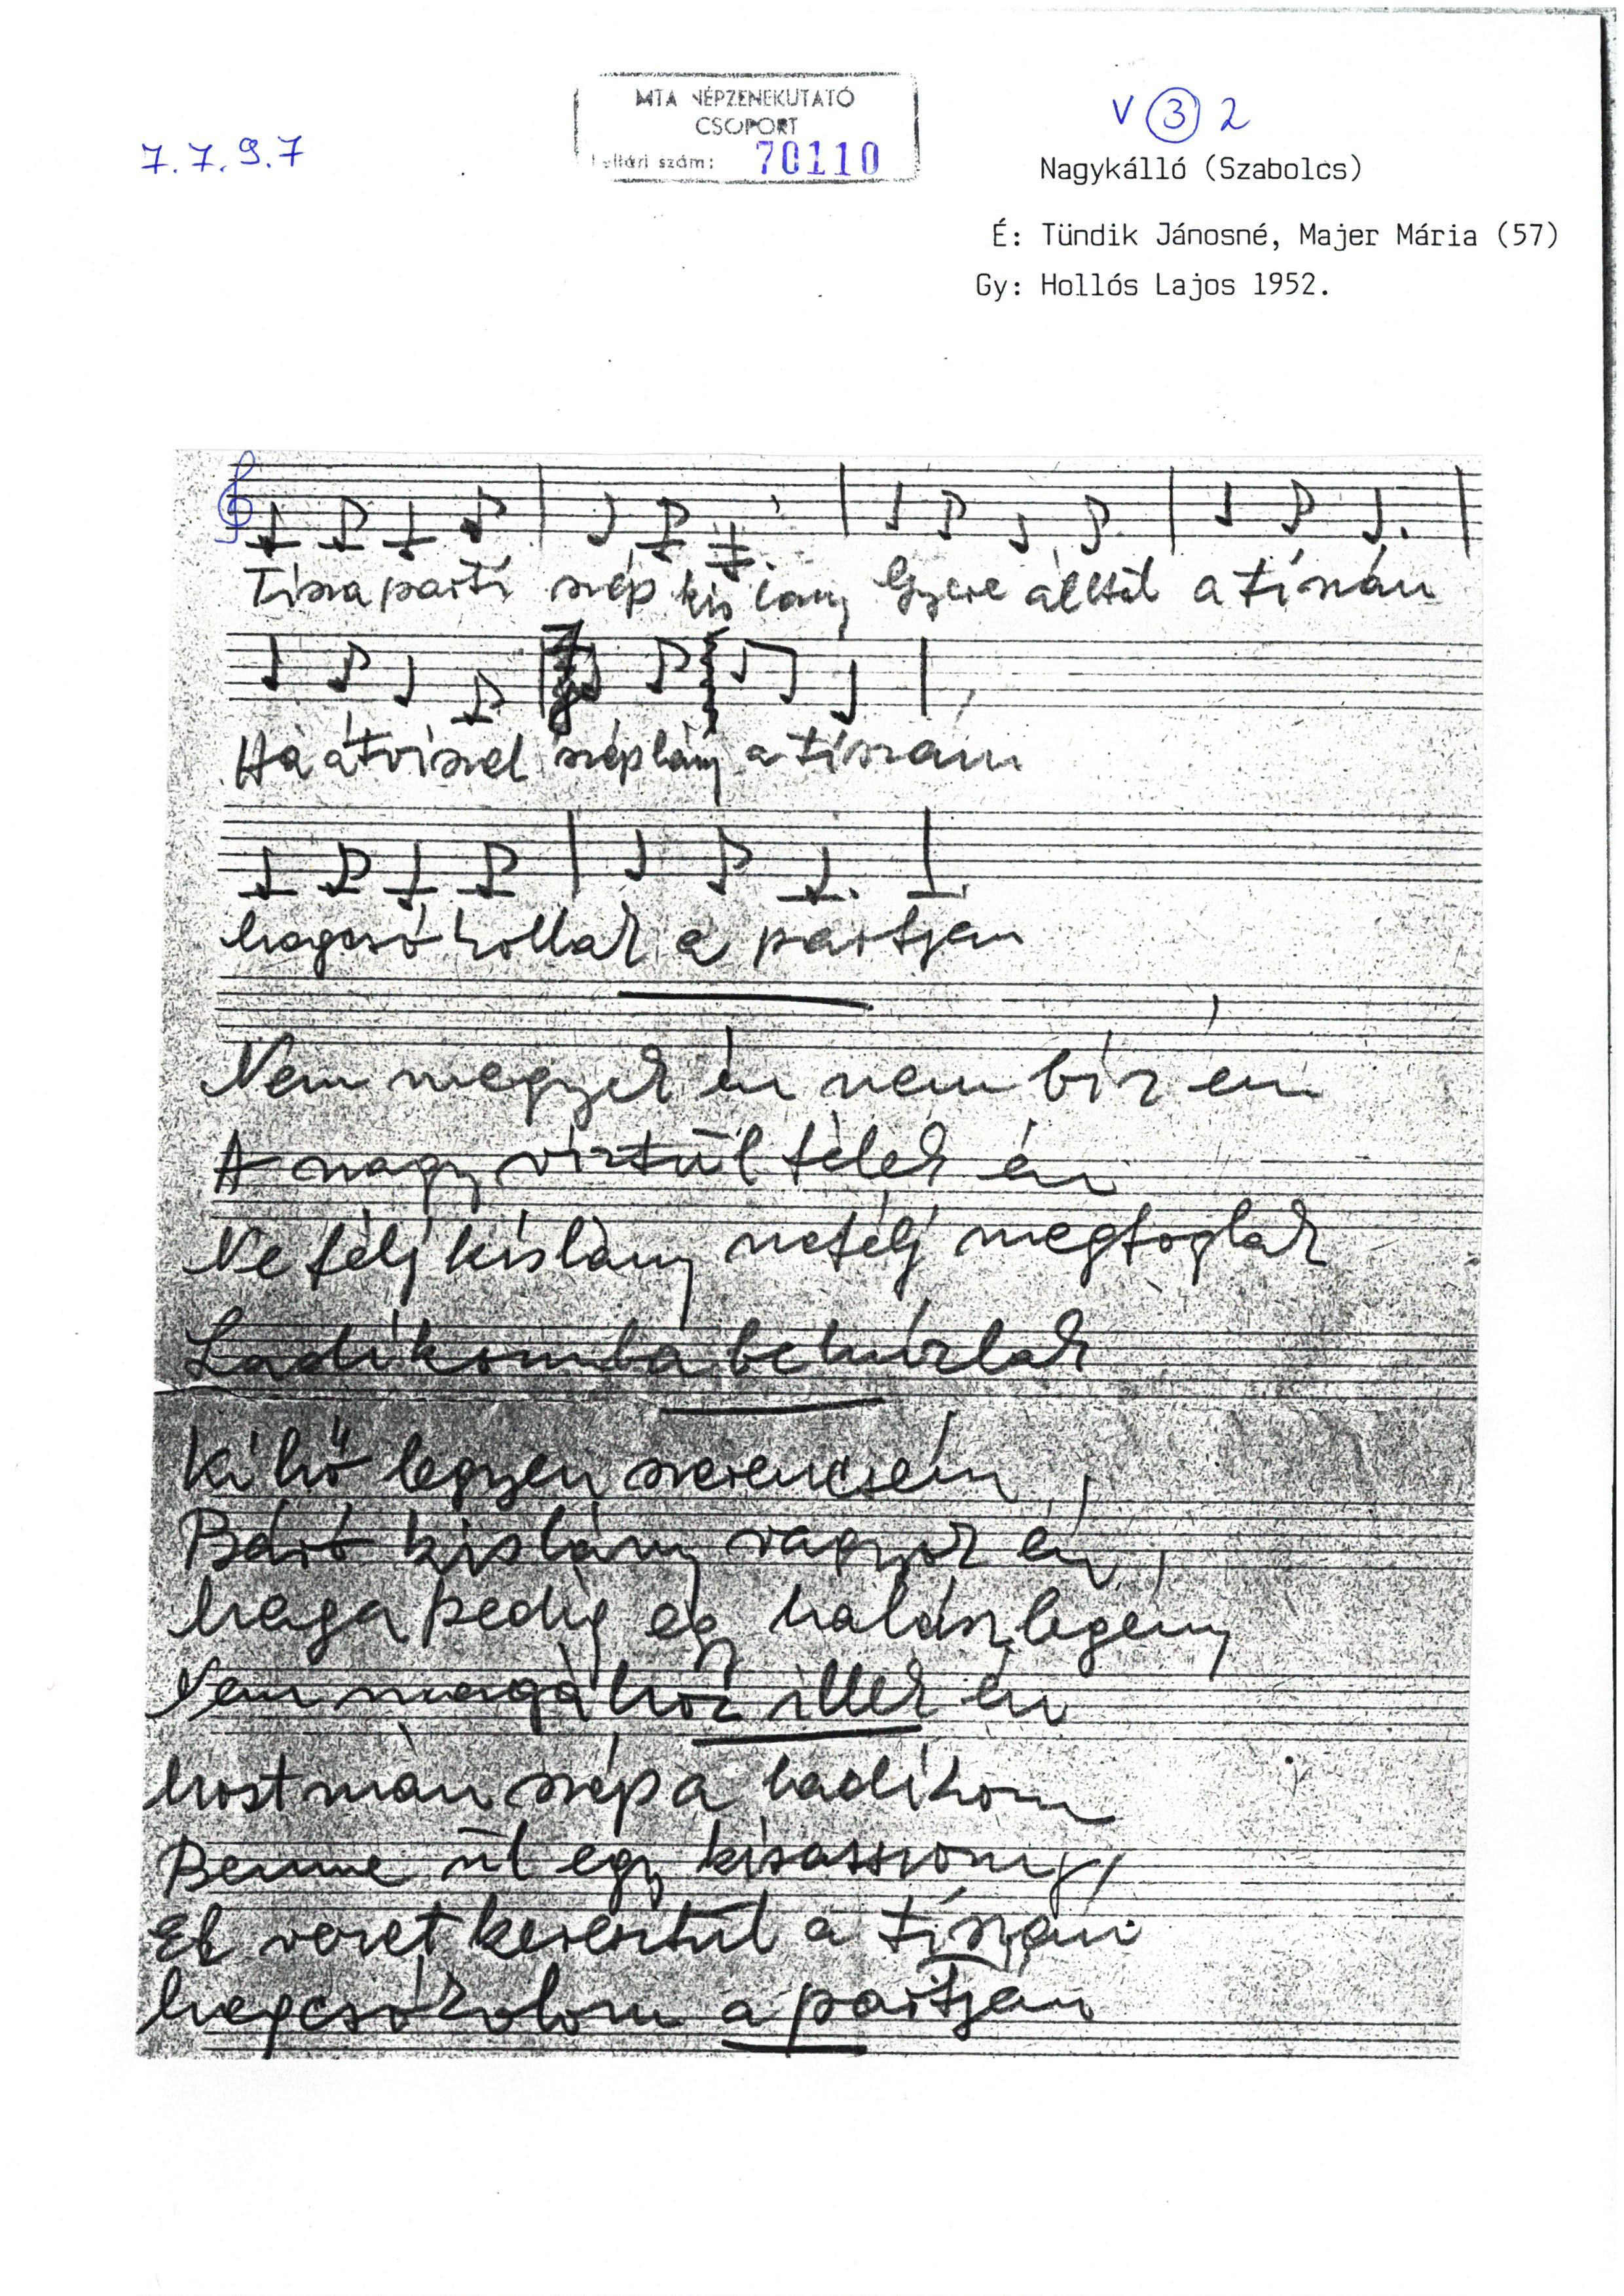 7.7.9.7
MTA NÉPZENEKUTATÓ
CSOPORT
Leltári szám: 70110
V 3 2
Nagykálló (Szabolcs)
É: Tündik Jánosné, Majer Mária (57)
Gy: Hollós Lajos 1952.
Tisza parti szép kis lány Gyere álltal a tiszán
Ha átviszel széplány a tiszán
Megcsókollak a partján
Nem megyek én nem biz én
A nagy víztűl félek én
Ne félj kislány ne félj megfoglak
Ladikomba behúzlak
Kihő legyen szerencsém,
Báró kislány vagyok én,
Maga pedig egy halászlegény
Nem magához illek én
Most mán szép a ladikom
Benne ül egy kisasszony,
El vezet keresztül a tiszán
Megcsókolom a partján